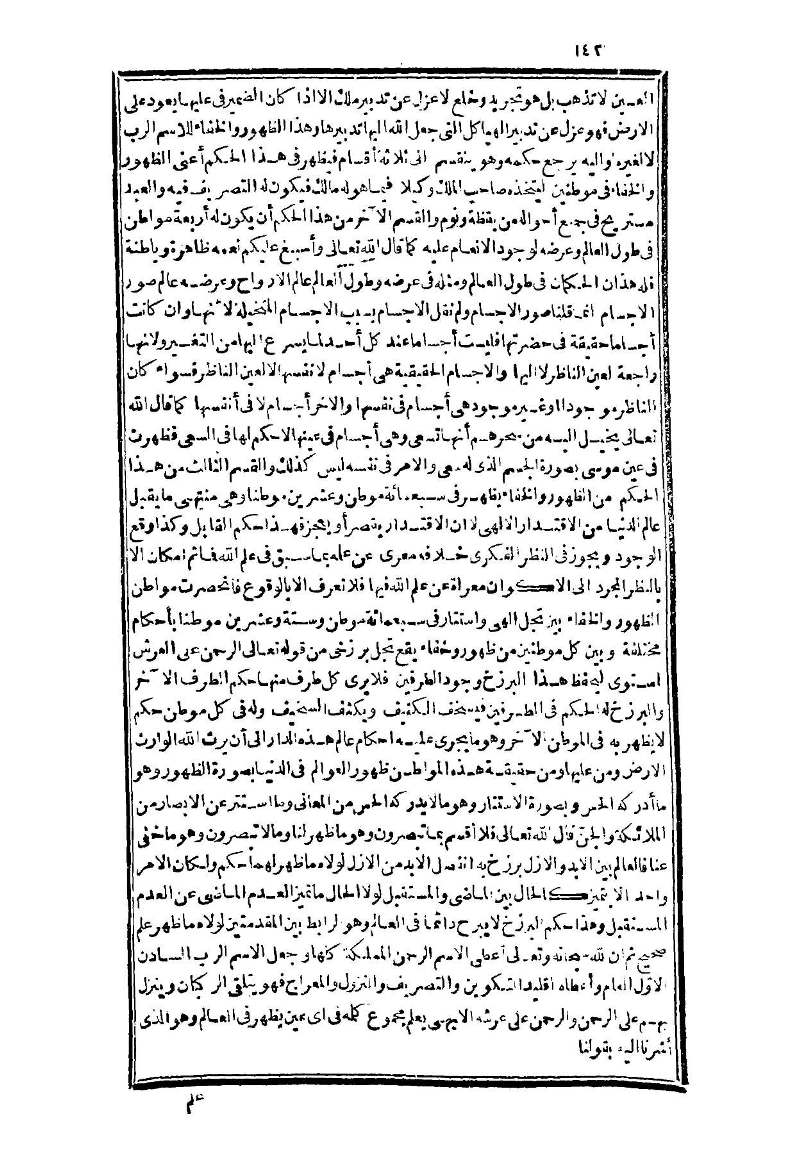 ١٤٢
العين لا تذهب بل هو تجريد وخلع لا عزل عن تدبير ملك الا اذا كان الضمير في عليها يعود على
الارض فهو عزل عن تدبير الهياكل التي جعل الله اليها تدبيرها وهذا الظهور والخفاء للاسم الرب
لا لغيره واليه يرجع حكمه وهو ينقسم الى ثلاثة أقسام فيظهر في هذا الحكم أعني الظهور
والخفاء في موطنين ليتخذه صاحب الملك وكيلا فيما هو له مالك فيكون له التصريف فيه والعبد
مستريح في جميع أحواله من يقظة ونوم والقسم الآخر من هذا الحكم أن يكون له أربعة مواطن
في طول العالم وعرضه لوجود الانعام عليه كما قال الله تعالى وأسبغ عليكم نعمه ظاهرة وباطنة
فله هذان الحكمان في طول العالم ومثله في عرضه وطول العالم عالم الارواح وعرضه عالم صور
الاجسام انما قلنا صور الاجسام ولم نقل الاجسام بسبب الاجسام المتخيلة لانها وان كانت
أجساما حقيقة في حضرتها فليست أجساما عند كل أحد لما يسرع اليها من التغيير ولانها
راجعة لعين الناظر لا اليها والاجسام الحقيقية هي أجسام لانفسها لا لعين الناظر فسواء كان
الناظر موجودا أو غير موجود هي أجسام في نفسها والاخر أجسام لا في أنفسها كما قال الله
تعالى يخيل اليه من سحرهم أنها تسعى وهي أجسام في عينها لا حكم لها في السعي فظهرت
في عين موسى بصورة الجسم الذي له سعي والامر في نفسه ليس كذلك والقسم الثالث من هذا
الحكم من الظهور والخفاء يظهر في سبعمائة موطن وعشرين موطنا وهي منتهى ما يقبل
عالم الدنيا من الاقتدار الالهي لا ان الاقتدار يقصر أو يعجز فهذا حكم القابل وكذا وقع
الوجود ويجوز في النظر الفكري خلافه معرى عن علمه بما سبق في علم الله فما ثم امكان الا
بالنظر المجرد الى الاكوان معراة عن علم الله فيها فلا تعرف الا بالوقوع فانحصرت مواطن
الظهور والخفاء بين تجل الهي واستتار في سبعمائة موطن وستة وعشرين موطنا بأحكام
مختلفة وبين كل موطنين من ظهور وخفاء يقع تجل برزخي من قوله تعالى الرحمن على العرش
استوى ليحفظ هذا البرزخ وجود الطرفين فلا يرى كل طرف منهما حكم الطرف الآخر
والبرزخ له الحكم في الطرفين فيسخف الكثيف ويكثف السخيف وله في كل موطن حكم
لا يظهر به في الموطن الآخر وهو ما يجرى عليه احكام عالم هذه الدار الى أن يرث الله الوارث
الارض ومن عليها ومن حقيقة هذه المواطن ظهور العوالم في الدنيا بصورة الظهور وهو
ما أدركه الحس وبصورة الاستتار وهو ما لا يدركه الحس من المعاني وما استتر عن الابصار من
الملائكة والجن قال الله تعالى فلا أقسم بما تبصرون وهو ما ظهر لنا وما لا تبصرون وهو ما خفي
عنا فالعالم بين الابد والازل برزخ به انفصل الابد من الازل لولاه ما ظهر لهما حكم ولكان الامر
واحدا لا يتميز كالحال بين الماضي والمستقبل لولا الحال ما تميز العدم الماضي عن العدم
المستقبل وهذا حكم البرزخ لا يبرح دائما في العالم وهو الرابط بين المقدمتين لولاه ما ظهر علم
صحيح ثم ان الله سبحانه وتعالى أعطى الاسم الرحمن المملكة كلها وجعل الاسم الرب السادن
الاول العام وأعطاه اقليد التكوين والتصريف والنزول والمعراج فهو يتلقى الركبان وينزل
بهم على الرحمن والرحمن على عرشه الابهى يعلم مجموع كله في اى عين يظهر في العالم وهو الذى
أشرنا اليه بقولنا
علم